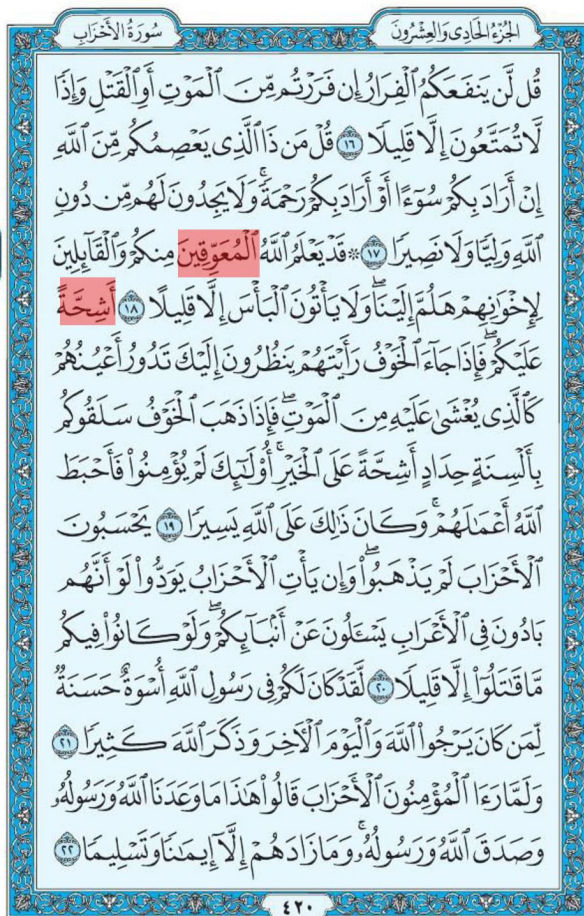 الجُزْءُ الحَادِى وَالعِشْرُونَ
سُورَةُ الأَحْزَابِ
قُل لَّن يَنفَعَكُمُ ٱلْفِرَارُ إِن فَرَرْتُم مِّنَ ٱلْمَوْتِ أَوِ ٱلْقَتْلِ وَإِذًا
لَّا تُمَتَّعُونَ إِلَّا قَلِيلًا ١٦ قُلْ مَن ذَا ٱلَّذِى يَعْصِمُكُم مِّنَ ٱللَّهِ
إِنْ أَرَادَ بِكُمْ سُوٓءًا أَوْ أَرَادَ بِكُمْ رَحْمَةً ۚ وَلَا يَجِدُونَ لَهُم مِّن دُونِ
ٱللَّهِ وَلِيًّا وَلَا نَصِيرًا ١٧ ۞ قَدْ يَعْلَمُ ٱللَّهُ ٱلْمُعَوِّقِينَ مِنكُمْ وَٱلْقَآئِلِينَ
لِإِخْوَٰنِهِمْ هَلُمَّ إِلَيْنَا ۖ وَلَا يَأْتُونَ ٱلْبَأْسَ إِلَّا قَلِيلًا ١٨ أَشِحَّةً
عَلَيْكُمْ ۖ فَإِذَا جَآءَ ٱلْخَوْفُ رَأَيْتَهُمْ يَنظُرُونَ إِلَيْكَ تَدُورُ أَعْيُنُهُمْ
كَٱلَّذِى يُغْشَىٰ عَلَيْهِ مِنَ ٱلْمَوْتِ ۖ فَإِذَا ذَهَبَ ٱلْخَوْفُ سَلَقُوكُم
بِأَلْسِنَةٍ حِدَادٍ أَشِحَّةً عَلَى ٱلْخَيْرِ ۚ أُو۟لَٰٓئِكَ لَمْ يُؤْمِنُوا۟ فَأَحْبَطَ
ٱللَّهُ أَعْمَٰلَهُمْ ۚ وَكَانَ ذَٰلِكَ عَلَى ٱللَّهِ يَسِيرًا ١٩ يَحْسَبُونَ
ٱلْأَحْزَابَ لَمْ يَذْهَبُوا۟ ۖ وَإِن يَأْتِ ٱلْأَحْزَابُ يَوَدُّوا۟ لَوْ أَنَّهُم
بَادُونَ فِى ٱلْأَعْرَابِ يَسْـَٔلُونَ عَنْ أَنۢبَآئِكُمْ ۖ وَلَوْ كَانُوا۟ فِيكُم
مَّا قَٰتَلُوٓا۟ إِلَّا قَلِيلًا ٢٠ لَّقَدْ كَانَ لَكُمْ فِى رَسُولِ ٱللَّهِ أُسْوَةٌ حَسَنَةٌ
لِّمَن كَانَ يَرْجُوا۟ ٱللَّهَ وَٱلْيَوْمَ ٱلْءَاخِرَ وَذَكَرَ ٱللَّهَ كَثِيرًا ٢١
وَلَمَّا رَءَا ٱلْمُؤْمِنُونَ ٱلْأَحْزَابَ قَالُوا۟ هَٰذَا مَا وَعَدَنَا ٱللَّهُ وَرَسُولُهُۥ
وَصَدَقَ ٱللَّهُ وَرَسُولُهُۥ ۚ وَمَا زَادَهُمْ إِلَّآ إِيمَٰنًا وَتَسْلِيمًا ٢٢
٤٢٠